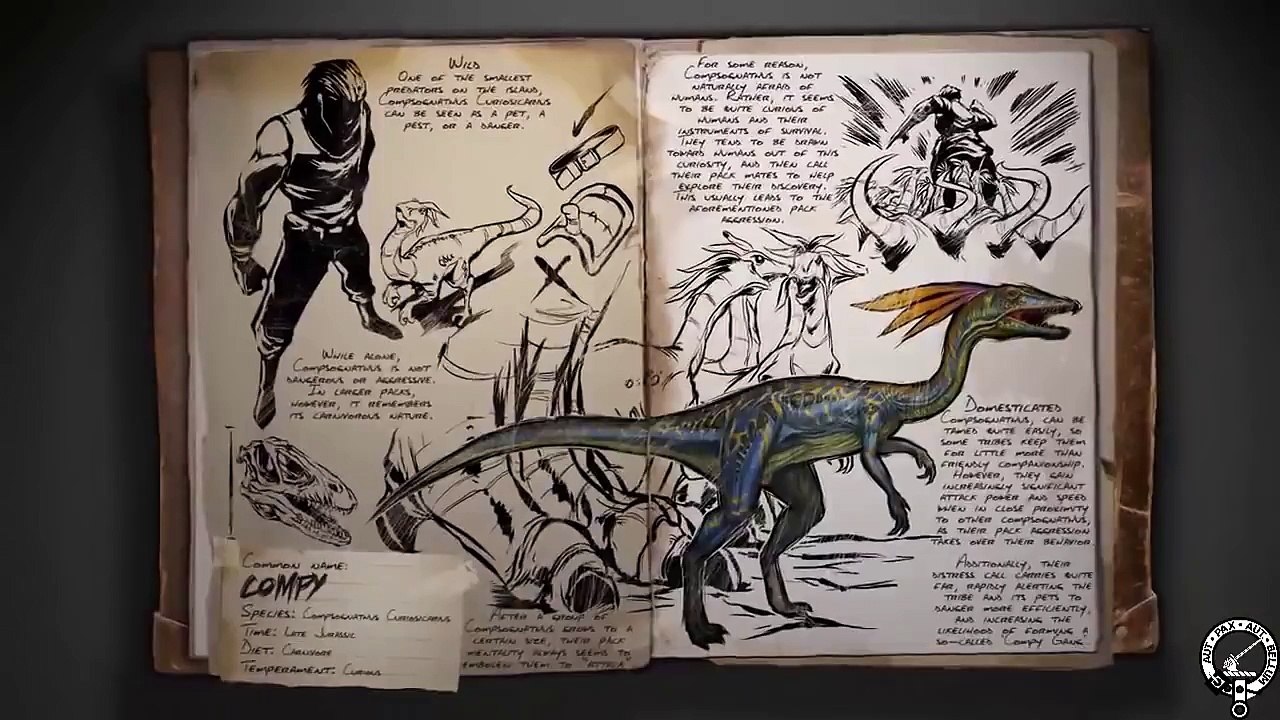 Wild
One of the smallest
predators on the island,
Compsognathus Curiosicarius
can be seen as a pet, a
pest, or a danger.
While alone,
Compsognathus is not
dangerous or aggressive.
In larger packs,
however, it remembers
its carnivorous nature.
Common name:
Compy
Species: Compsognathus Curiosicarius
Time: Late Jurassic
Diet: Carnivore
Temperament: Curious
After a group of
Compsognathus grows to a
certain size, their pack
mentality always seems to
embolden them to "attack"
For some reason,
Compsognathus is not
naturally afraid of
humans. Rather, it seems
to be quite curious of
humans and their
instruments of survival.
They tend to be drawn
toward humans out of this
curiosity, and then call
their pack mates to help
explore their discovery.
This usually leads to the
aforementioned pack
aggression.
Domesticated
Compsognathus, can be
tamed quite easily, so
some tribes keep them
for little more than
friendly companionship.
However, they gain
increasingly significant
attack power and speed
when in close proximity
to other Compsognathus,
as their pack aggression
takes over their behavior
Additionally, their
distress call carries quite
far, rapidly alerting the
tribe and its pets to
danger more efficiently,
and increasing the
likelihood of forming a
so-called "Compy Gang"
AUT • PAX • AUT • BELLUM